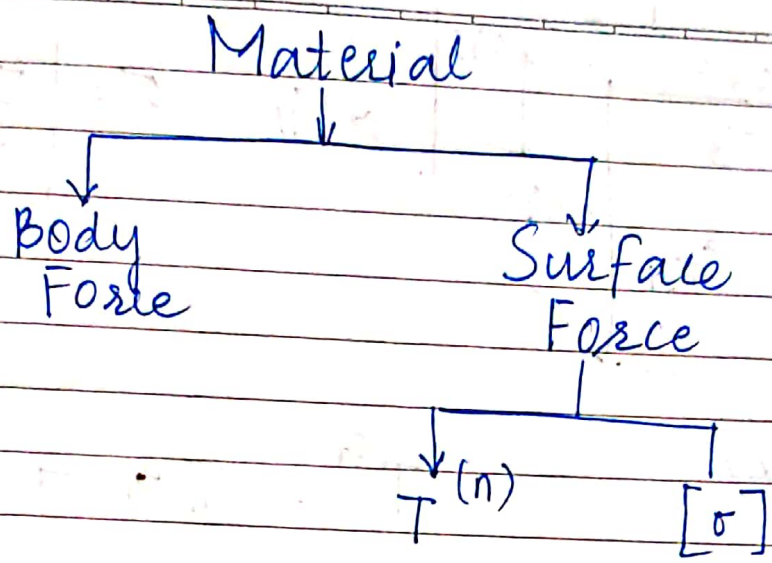 Material
Body
Force
Surface
Force
T(n)
[σ]